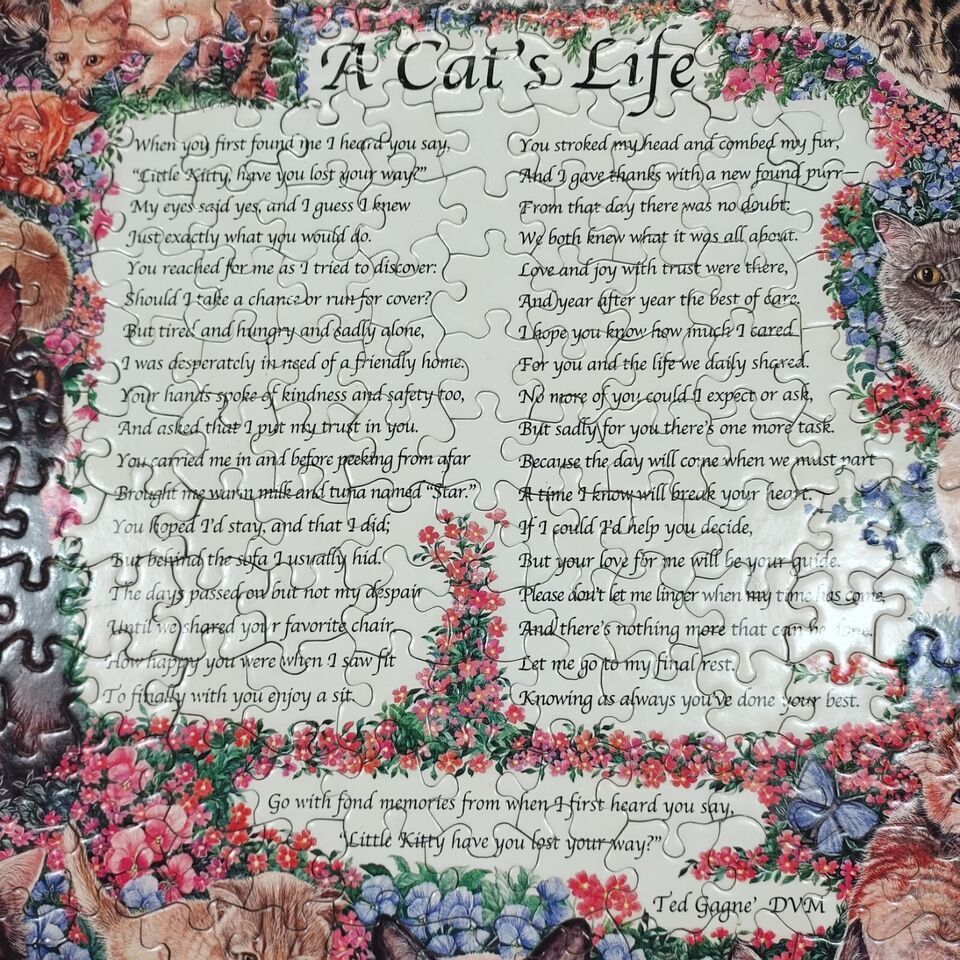 A Cat's Life
When you first found me I heard you say,
"Little Kitty, have you lost your way?"
My eyes said yes, and I guess I knew
Just exactly what you would do.
You reached for me as I tried to discover:
Should I take a chance or run for cover?
But tired and hungry and sadly alone,
I was desperately in need of a friendly home.
Your hands spoke of kindness and safety too,
And asked that I put my trust in you.
You carried me in and before peeking from afar
Brought me warm milk and tuna named "Star."
You hoped I'd stay, and that I did;
But behind the sofa I usually hid.
The days passed on but not my despair
Until we shared your favorite chair.
How happy you were when I saw fit
To finally with you enjoy a sit.
You stroked my head and combed my fur,
And I gave thanks with a new found purr—
From that day there was no doubt:
We both knew what it was all about.
Love and joy with trust were there,
And year after year the best of care.
I hope you know how much I cared
For you and the life we daily shared.
No more of you could I expect or ask,
But sadly for you there's one more task.
Because the day will come when we must part
A time I know will break your heart.
If I could I'd help you decide,
But your love for me will be your guide.
Please don't let me linger when my time has come,
And there's nothing more that can be done.
Let me go to my final rest.
Knowing as always you've done your best.
Go with fond memories from when I first heard you say,
"Little Kitty have you lost your way?"
Ted Gagne' DVM